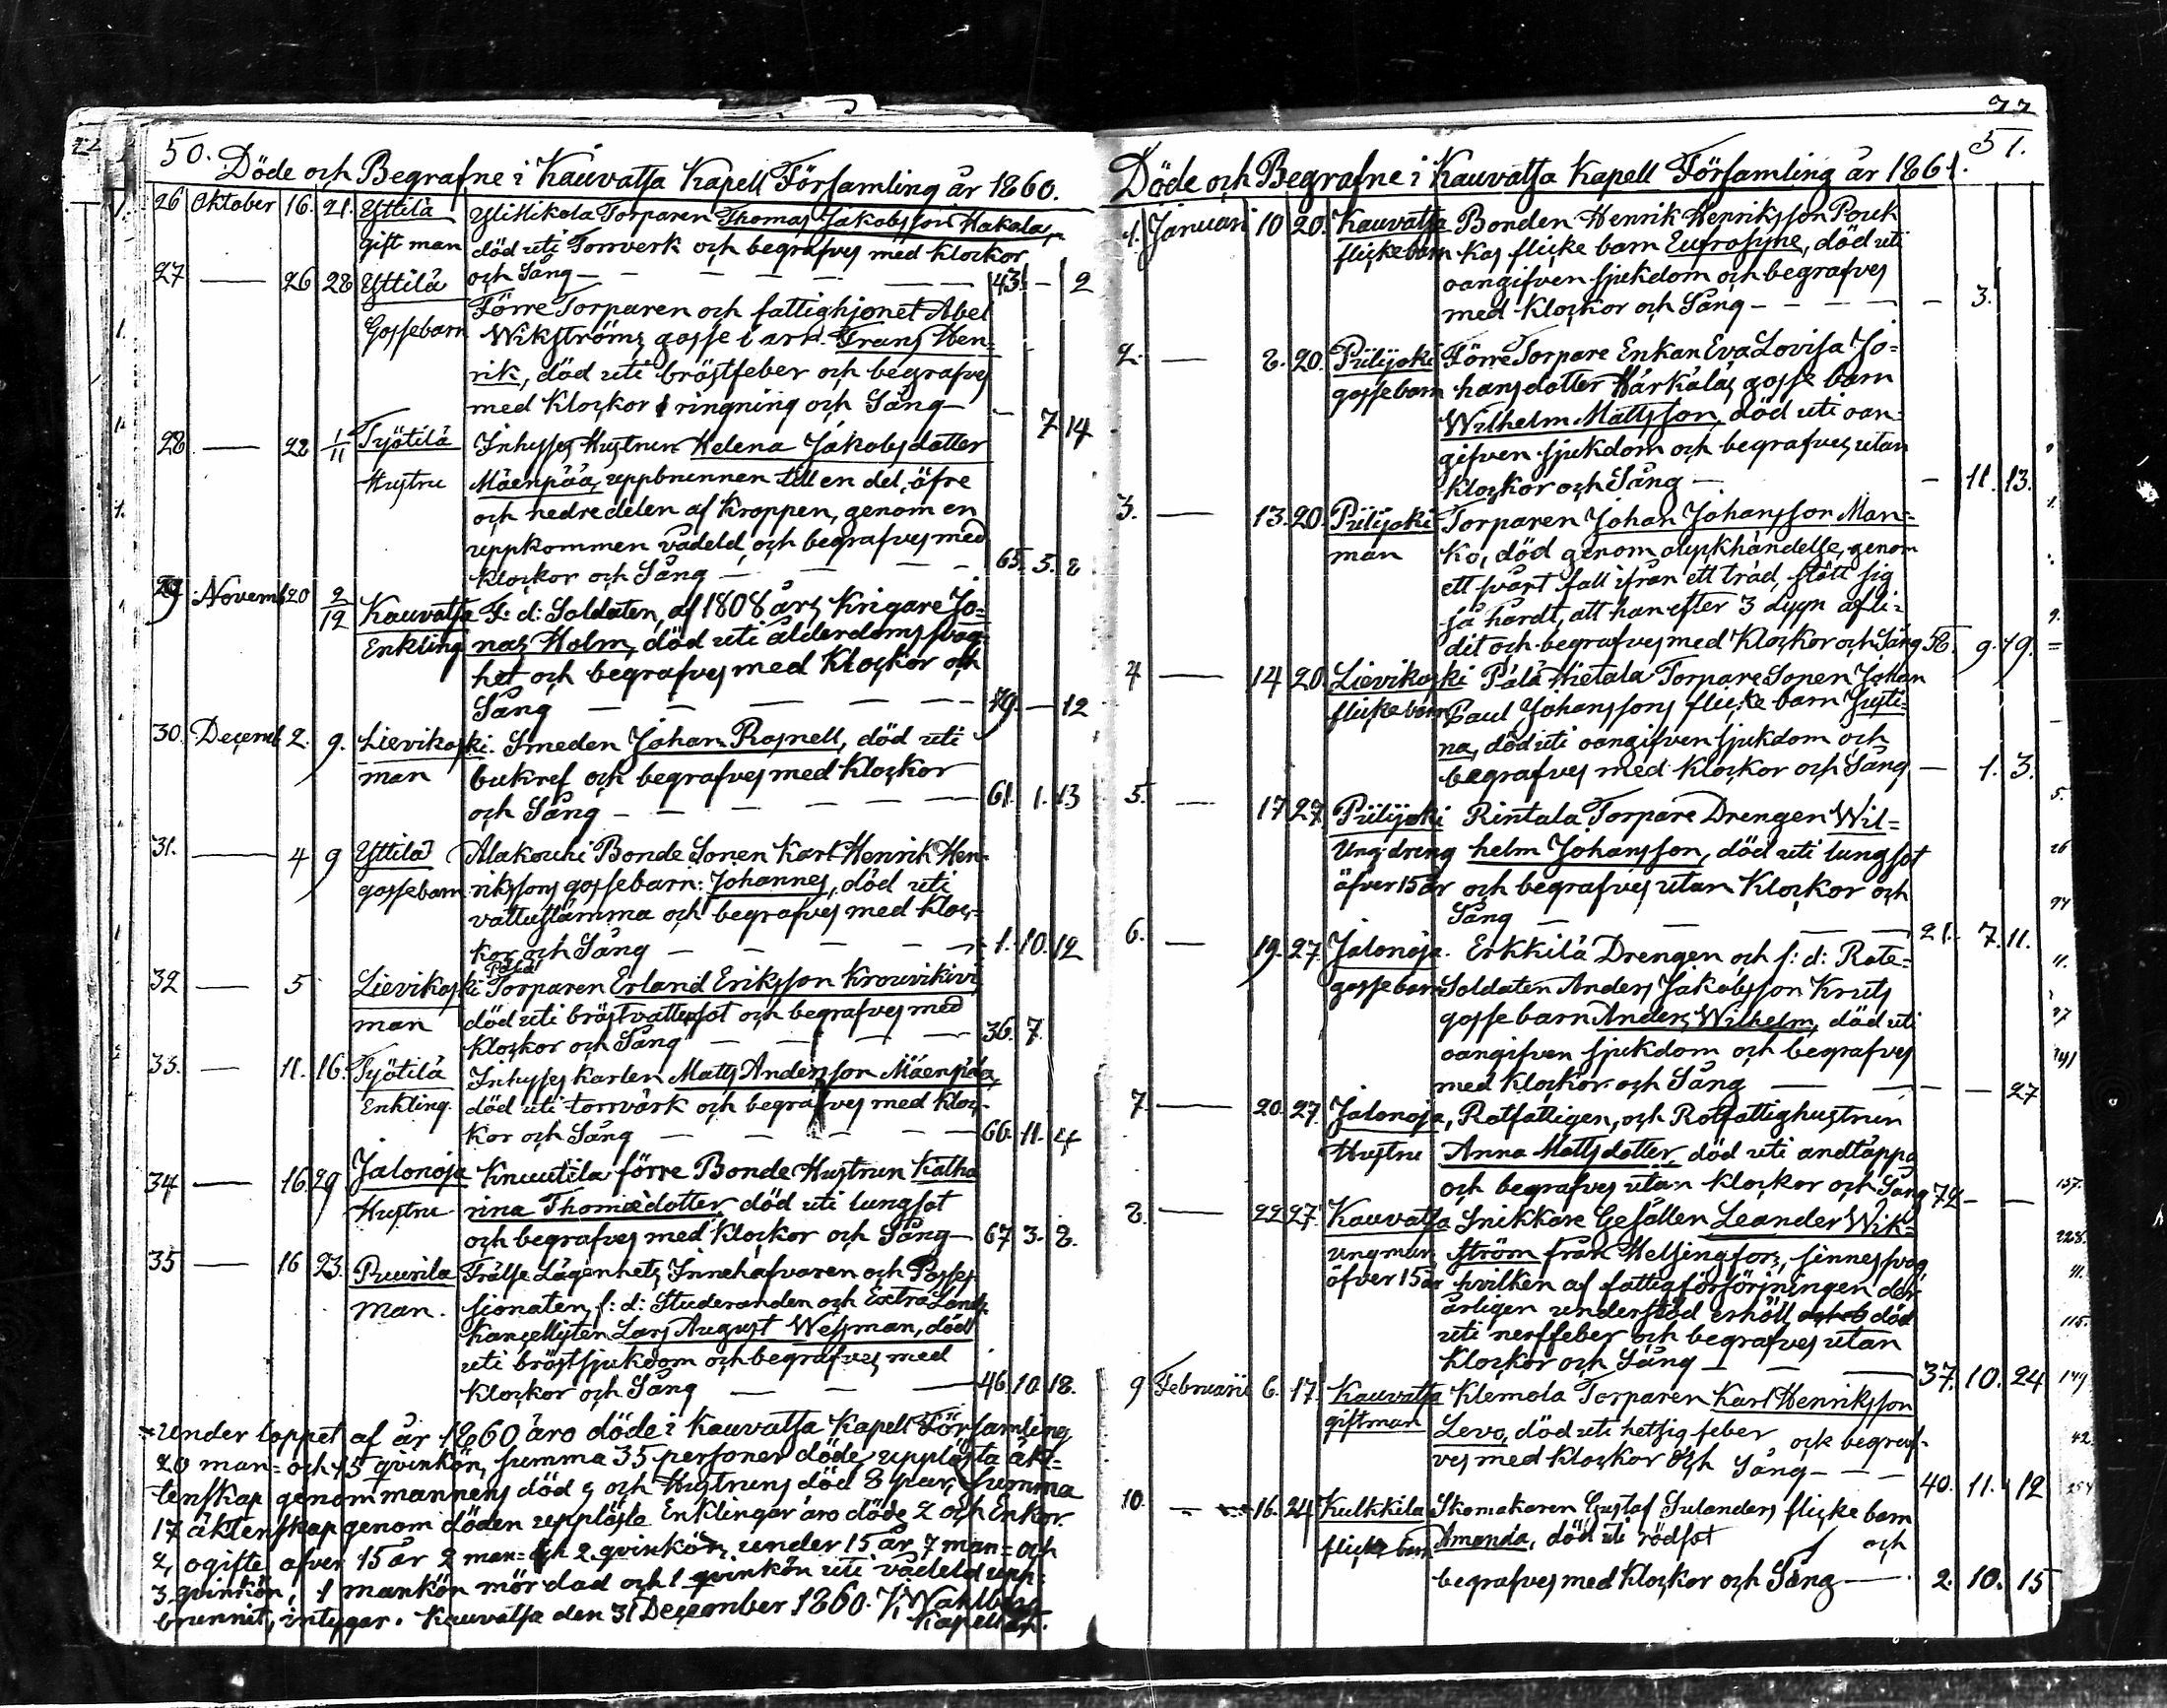 50.
Döde och Begrafne i Kauvatsa Kapell Församling år 1860.
26 Oktober 16. 21. Yttilä Ylitikola Torparen Thomas Jakobsson Hakala,
Gift man död uti Torrverk och begrafves med Klockor
och Sång — 43. — 2
27 — 26 28 Yttilä Förre Torparen och fattighjonet Abel
Gossebarn Wikströms gosse barn Frans Hen-
rik, död uti bröstfeber och begrafves
med Klockor ringning och Sång — 7 14
28 — 22 1/11 Työtilä Inhyses Hustrun Helena Jakobsdotter
Hustru Mäenpää, uppbrunnen till en del, öfre
och nedre delen af Kroppen, genom en
uppkommen vådeld, och begrafves med
Klockor och Sång — 65. 5. 8.
29 Novemb 20 2/12 Kauvatsa F: d: Soldaten, af 1808 års Krigare Jo-
Enkling nas Holm, död uti ålderdoms svag-
het och begrafves med Klockor och
Sång — 79. — 12
30. Decemb 2. 9. Lievikoski. Smeden Johan Rosnell, död uti
man bukref och begrafves med Klockor
och Sång — 61. 1. 13
31. — 4 9 Yttilä Alakouhi Bonde Sonen Karl Henrik Hen-
gossebarn rikssons gossebarn: Johannes, död uti
vattustämma och begrafves med Kloc-
kor och Sång — 1. 10. 12
32 — 5 Lievikoski Pålä Torparen Erland Eriksson Krouvikivi
man död uti bröstvattusot och begrafves med
Klockor och Sång — 36. 7.
33. — 11. 16. Työtilä Inhyses Karlen Matts Andersson Mäenpää,
Enkling. död uti torrvärk och begrafves med Kloc-
kor och Sång — 66. 11. 4
34 — 16. 29 Jalonoja Knuutila förre Bonde Hustrun Katha
Hustru rina Thomædotter död uti lungsot
och begrafves med Klockor och Sång — 67 3. 8.
35 — 16 23. Puurila Frälse Lägenhets Innehafvaren och Posses-
Man. sionaten, f: d: Studeranden och Extra Lands
Kancellisten Lars August Wessman, död
uti bröstsjukdom och begrafves med
Klockor och Sång — 46. 10. 18.
Under loppet af år 1860 äro döde i Kauvatsa Kapell Församling
20 man- och 15 qvinkön, summa 35 personer döde, upplösta äkt-
tenskap genom mannens död 9 och Hustruns död 8 par, summa
17 äktenskap genom döden upplösta Enklingar äro döde 2 och Enkor
2, ogifte öfver 15 år 2 man- och 2 qvinkön, under 15 år 7 man- och
3 qvinkön, 1 mankön mördad och 1 qvinkön uti vådeld upp-
brunnit, intygar. Kauvatsa den 31 December 1860.
Kapellan.
51.
Döde och Begrafne i Kauvatsa Kapell Församling år 1861.
1. Januari 10 20. Kauvatsa Bonden Henrik Henriksson Pouk
flickebarn kas flicke barn Eufrosyne, död uti
oangifven sjukdom och begrafves
med Klockor och Sång — — 3.
2. — 8. 20. Piilijoki Förre Torpare Enkan Eva Lovisa Jo-
gossebarn hansdotter Härkäläs gosse barn
Wilhelm Mattsson, död uti oan-
gifven sjukdom och begrafves utan
Klockor och Sång — — 11. 13.
3. — 13. 20. Piilijoki Torparen Johan Johansson Man-
man ko, död genom olyckhändelse, genom
ett svårt fall ifrån ett träd, stött sig
så hårdt, att han efter 3 dygn afli-
dit och begrafves med Klockor och Sång 58. 9. 19.
4 — 14 20. Lievikoski Pälä Hietala Torpare Sonen Johan
flickebarn Paul Johanssons flicke barn Justi-
na, död uti oangifven sjukdom och
begrafves med Klockor och Sång — 1. 3.
5. — 17 27. Piilijoki Rintala Torpare Drengen Wil-
Ung dreng helm Johansson, död uti lungsot
öfver 15 år och begrafves utan Klockor och
Sång — 21. 7. 11.
6. — 19. 27. Jalonoja. Erkkilä Drengen och f: d: Rote-
gossebarn Soldaten Anders Jakobsson Kruts
gosse barn Anders Wilhelm, död uti
oangifven sjukdom och begrafves
med Klockor och Sång — — — 27
7. — 20. 27. Jalonoja, Rotfattigen, och Rotfattighustrun
Hustru Anna Mattsdotter, död uti andtäppa
och begrafves utan Klockor och Sång 72 — —
8. — 22 27. Kauvatsa Snikkare Gesällen Leander Wik-
ungman, ström från Helsingfors, sinnessvag
öfver 15 år hvilken af fattigförsörjningen der
årligen understöd erhöll död
uti nerffeber och begrafves utan
Klockor och Sång — 37. 10. 24
9 Februarii 6. 17. Kauvatsa Klemola Torparen Karl Henriksson
giftman Levo, död uti hetsig feber och begraf-
ves med Klockor och Sång — 40. 11. 12
10. — 16. 24 Kulkkila Skomakaren Gustaf Sulanders flicke barn
flicke barn Amanda, död uti rödsot och
begrafves med Klockor och Sång — 2. 10. 15